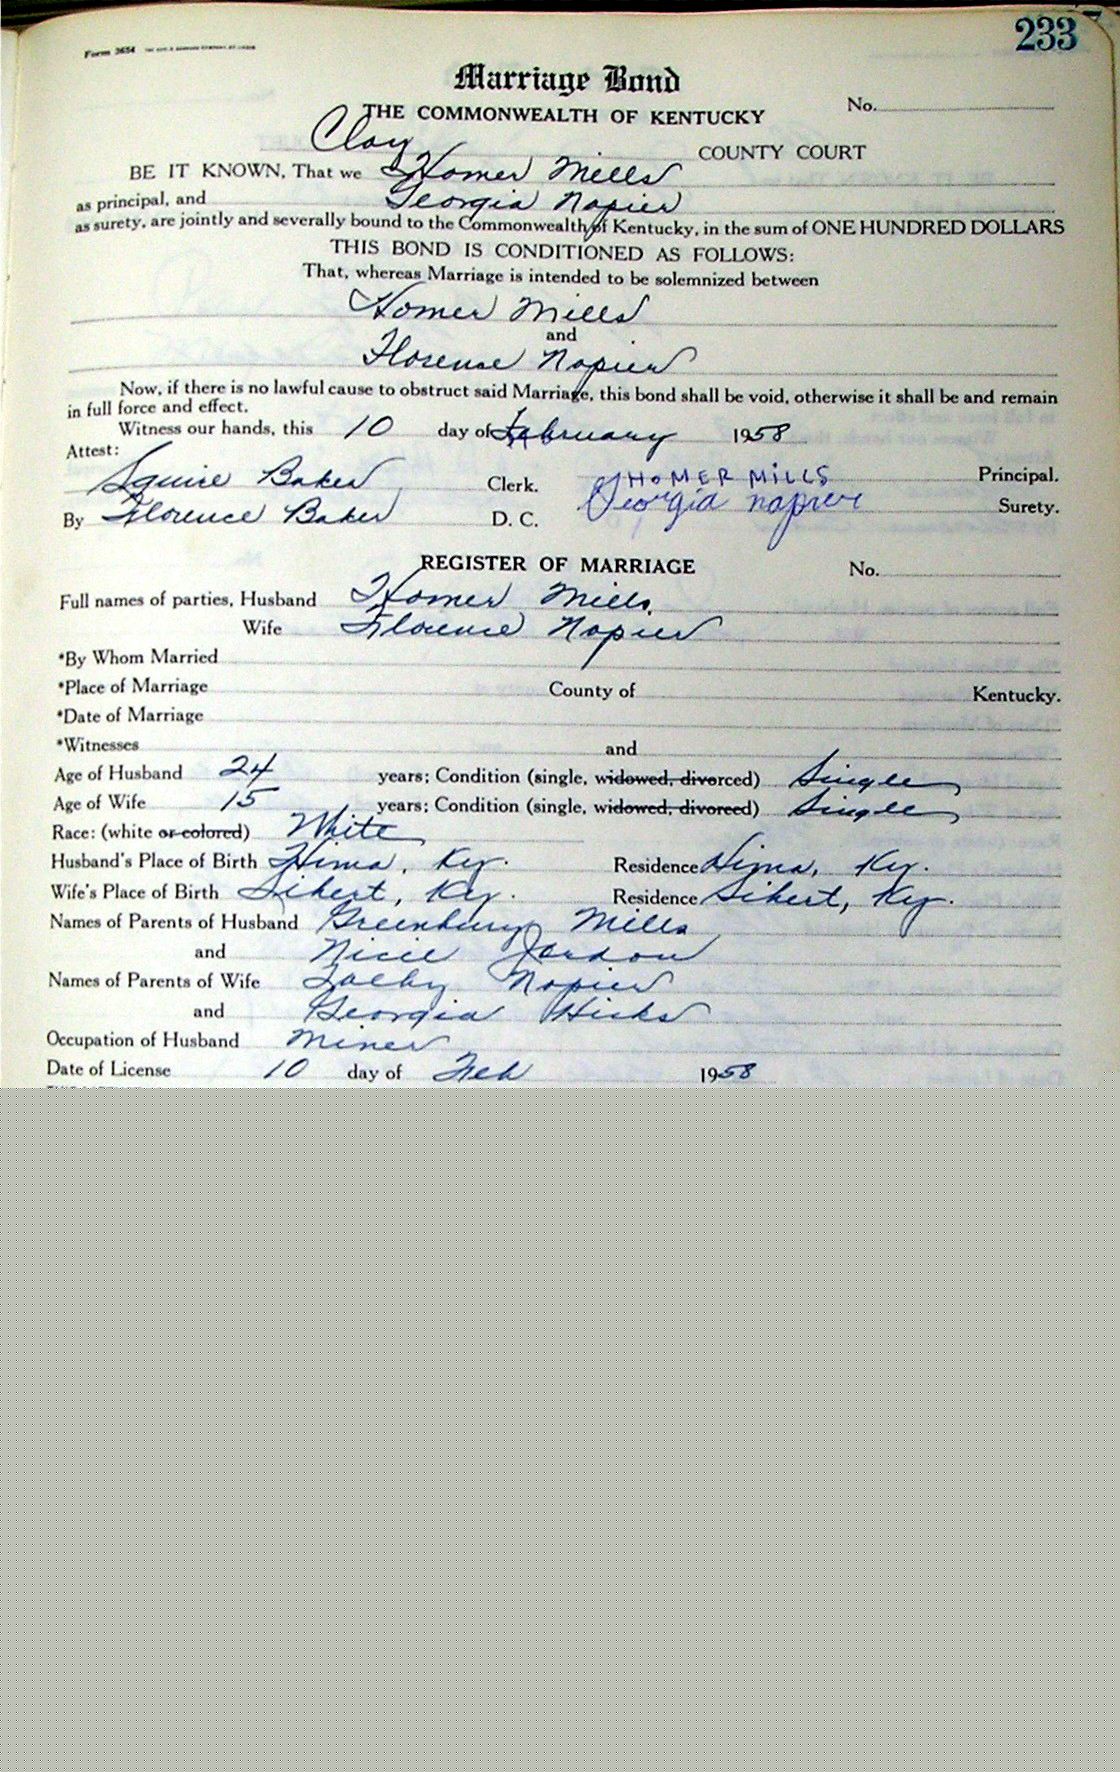 233
Form 3654
Marriage Bond
THE COMMONWEALTH OF KENTUCKY No.
Clay COUNTY COURT
BE IT KNOWN, That we Homer Mills
as principal, and Georgia Napier
as surety, are jointly and severally bound to the Commonwealth of Kentucky, in the sum of ONE HUNDRED DOLLARS
THIS BOND IS CONDITIONED AS FOLLOWS:
That, whereas Marriage is intended to be solemnized between
Homer Mills
and
Florence Napier
Now, if there is no lawful cause to obstruct said Marriage, this bond shall be void, otherwise it shall be and remain
in full force and effect.
Witness our hands, this 10 day of February 1958
Attest:
Squire Baker Clerk. HOMER MILLS Principal.
By Florence Baker D. C. Georgia napier Surety.
REGISTER OF MARRIAGE No.
Full names of parties, Husband Homer Mills
Wife Florence Napier
*By Whom Married
*Place of Marriage County of Kentucky.
*Date of Marriage
*Witnesses and
Age of Husband 24 years; Condition (single, widowed, divorced) Single
Age of Wife 15 years; Condition (single, widowed, divorced) Single
Race: (white or colored) White
Husband's Place of Birth Hima, Ky. Residence Hima, Ky.
Wife's Place of Birth Sibert, Ky. Residence Sibert, Ky.
Names of Parents of Husband Greenbury Mills
and Nicie Jordon
Names of Parents of Wife Napier
and Georgia Hicks
Occupation of Husband Miner
Date of License 10 day of Feb 1958